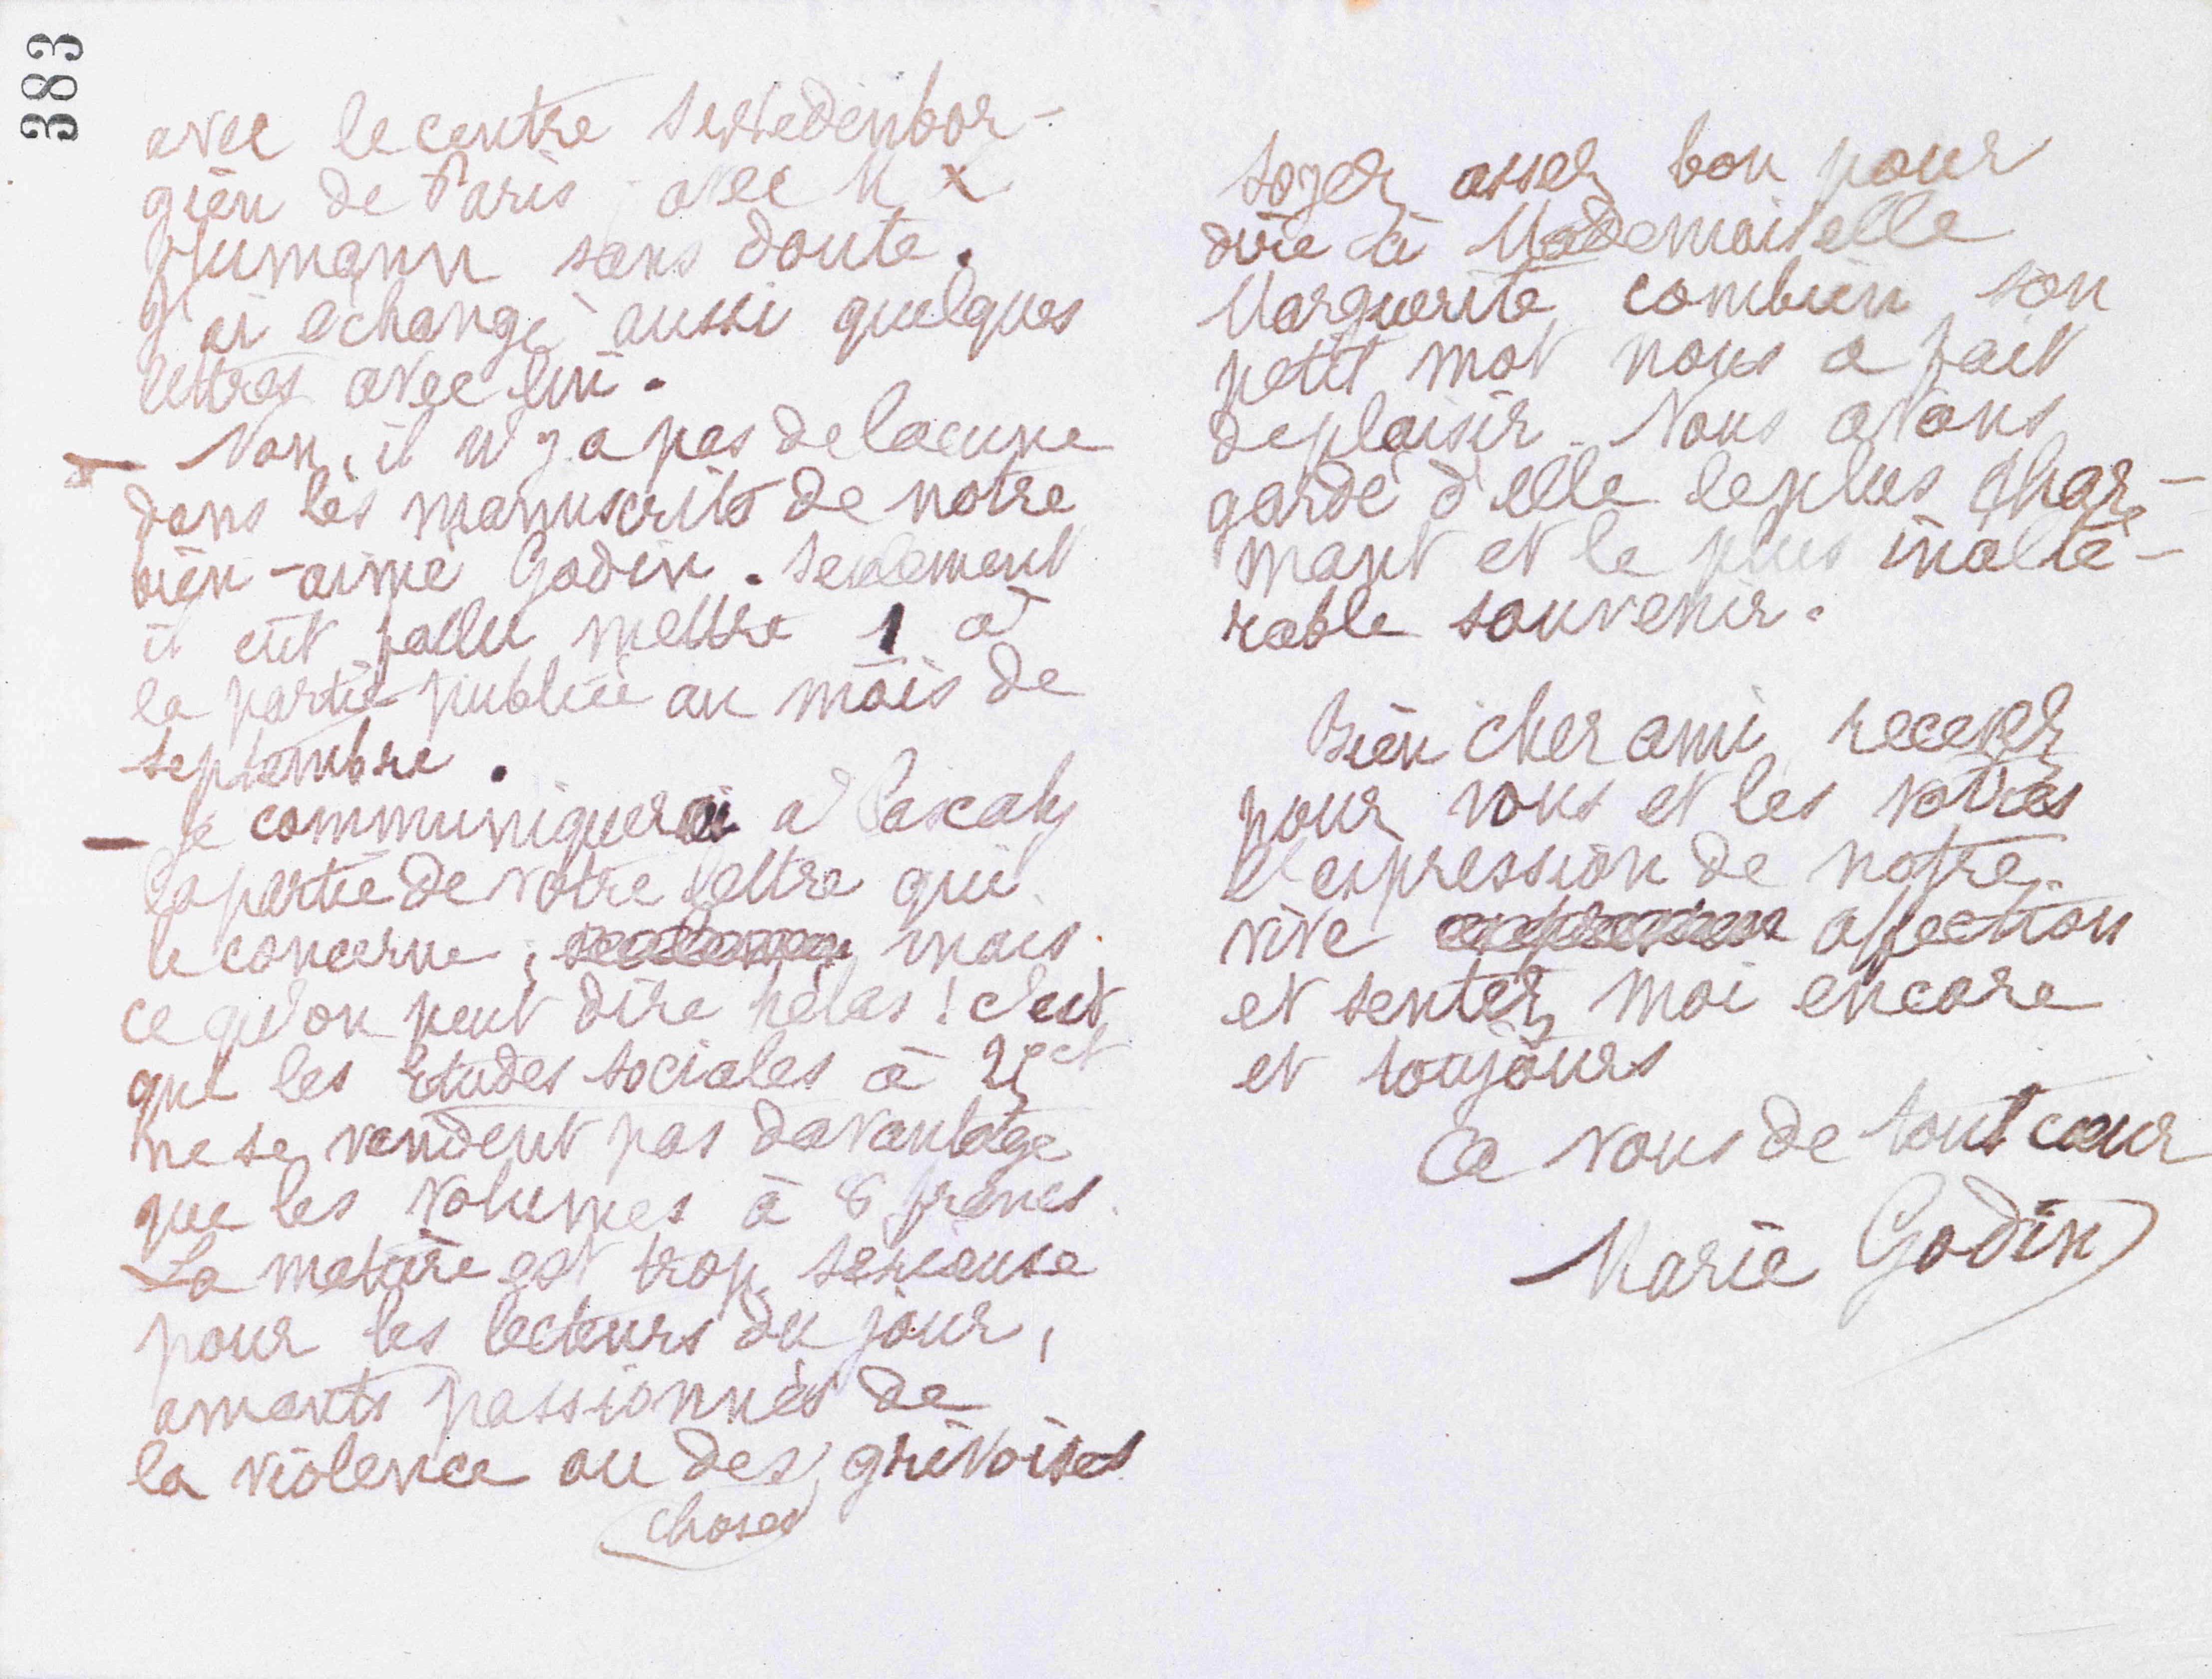 383
avec le centre Swedenbor-
gien de Paris avec M
Humann sans doute.
J'ai échangé aussi quelques
lettres avec lui.
— Non, il n'y a pas de lacune
dans les manuscrits de notre
bien-aimé Godin. Seulement
il eut fallu mettre 1 à
la partie publiée au mois de
septembre.
— Je communiquerai à Pascaly
la partie de votre lettre qui
le concerne; mais
ce qu'on peut dire hélas! c'est
que les Etudes sociales à 25ct
ne se vendent pas davantage
que les volumes à 8 francs.
La matière est trop sérieuse
pour les lecteurs du jour,
amants passionnés de
la violence ou des grivoises
choses
Soyez assez bon pour
dire à Mademoiselle
Marguerite combien son
petit mot nous a fait
de plaisir. Nous avons
gardé d'elle le plus char-
mant et le plus inalté-
rable souvenir.
Bien cher ami, recevez
pour vous et les vôtres
l'expression de notre
vive affection
et sentez moi encore
et toujours
à vous de tout cœur
Marie Godin